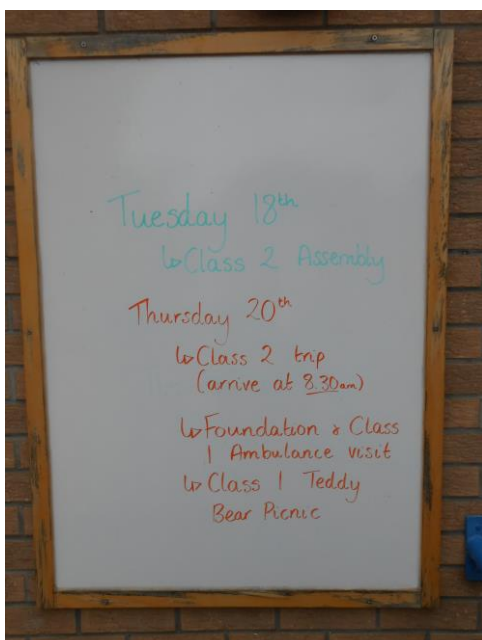 Tuesday 18th
↳Class 2 Assembly
Thursday 20th
↳Class 2 trip
(arrive at 8.30am)
↳Foundation & Class
1 Ambulance visit
↳Class 1 Teddy
Bear Picnic